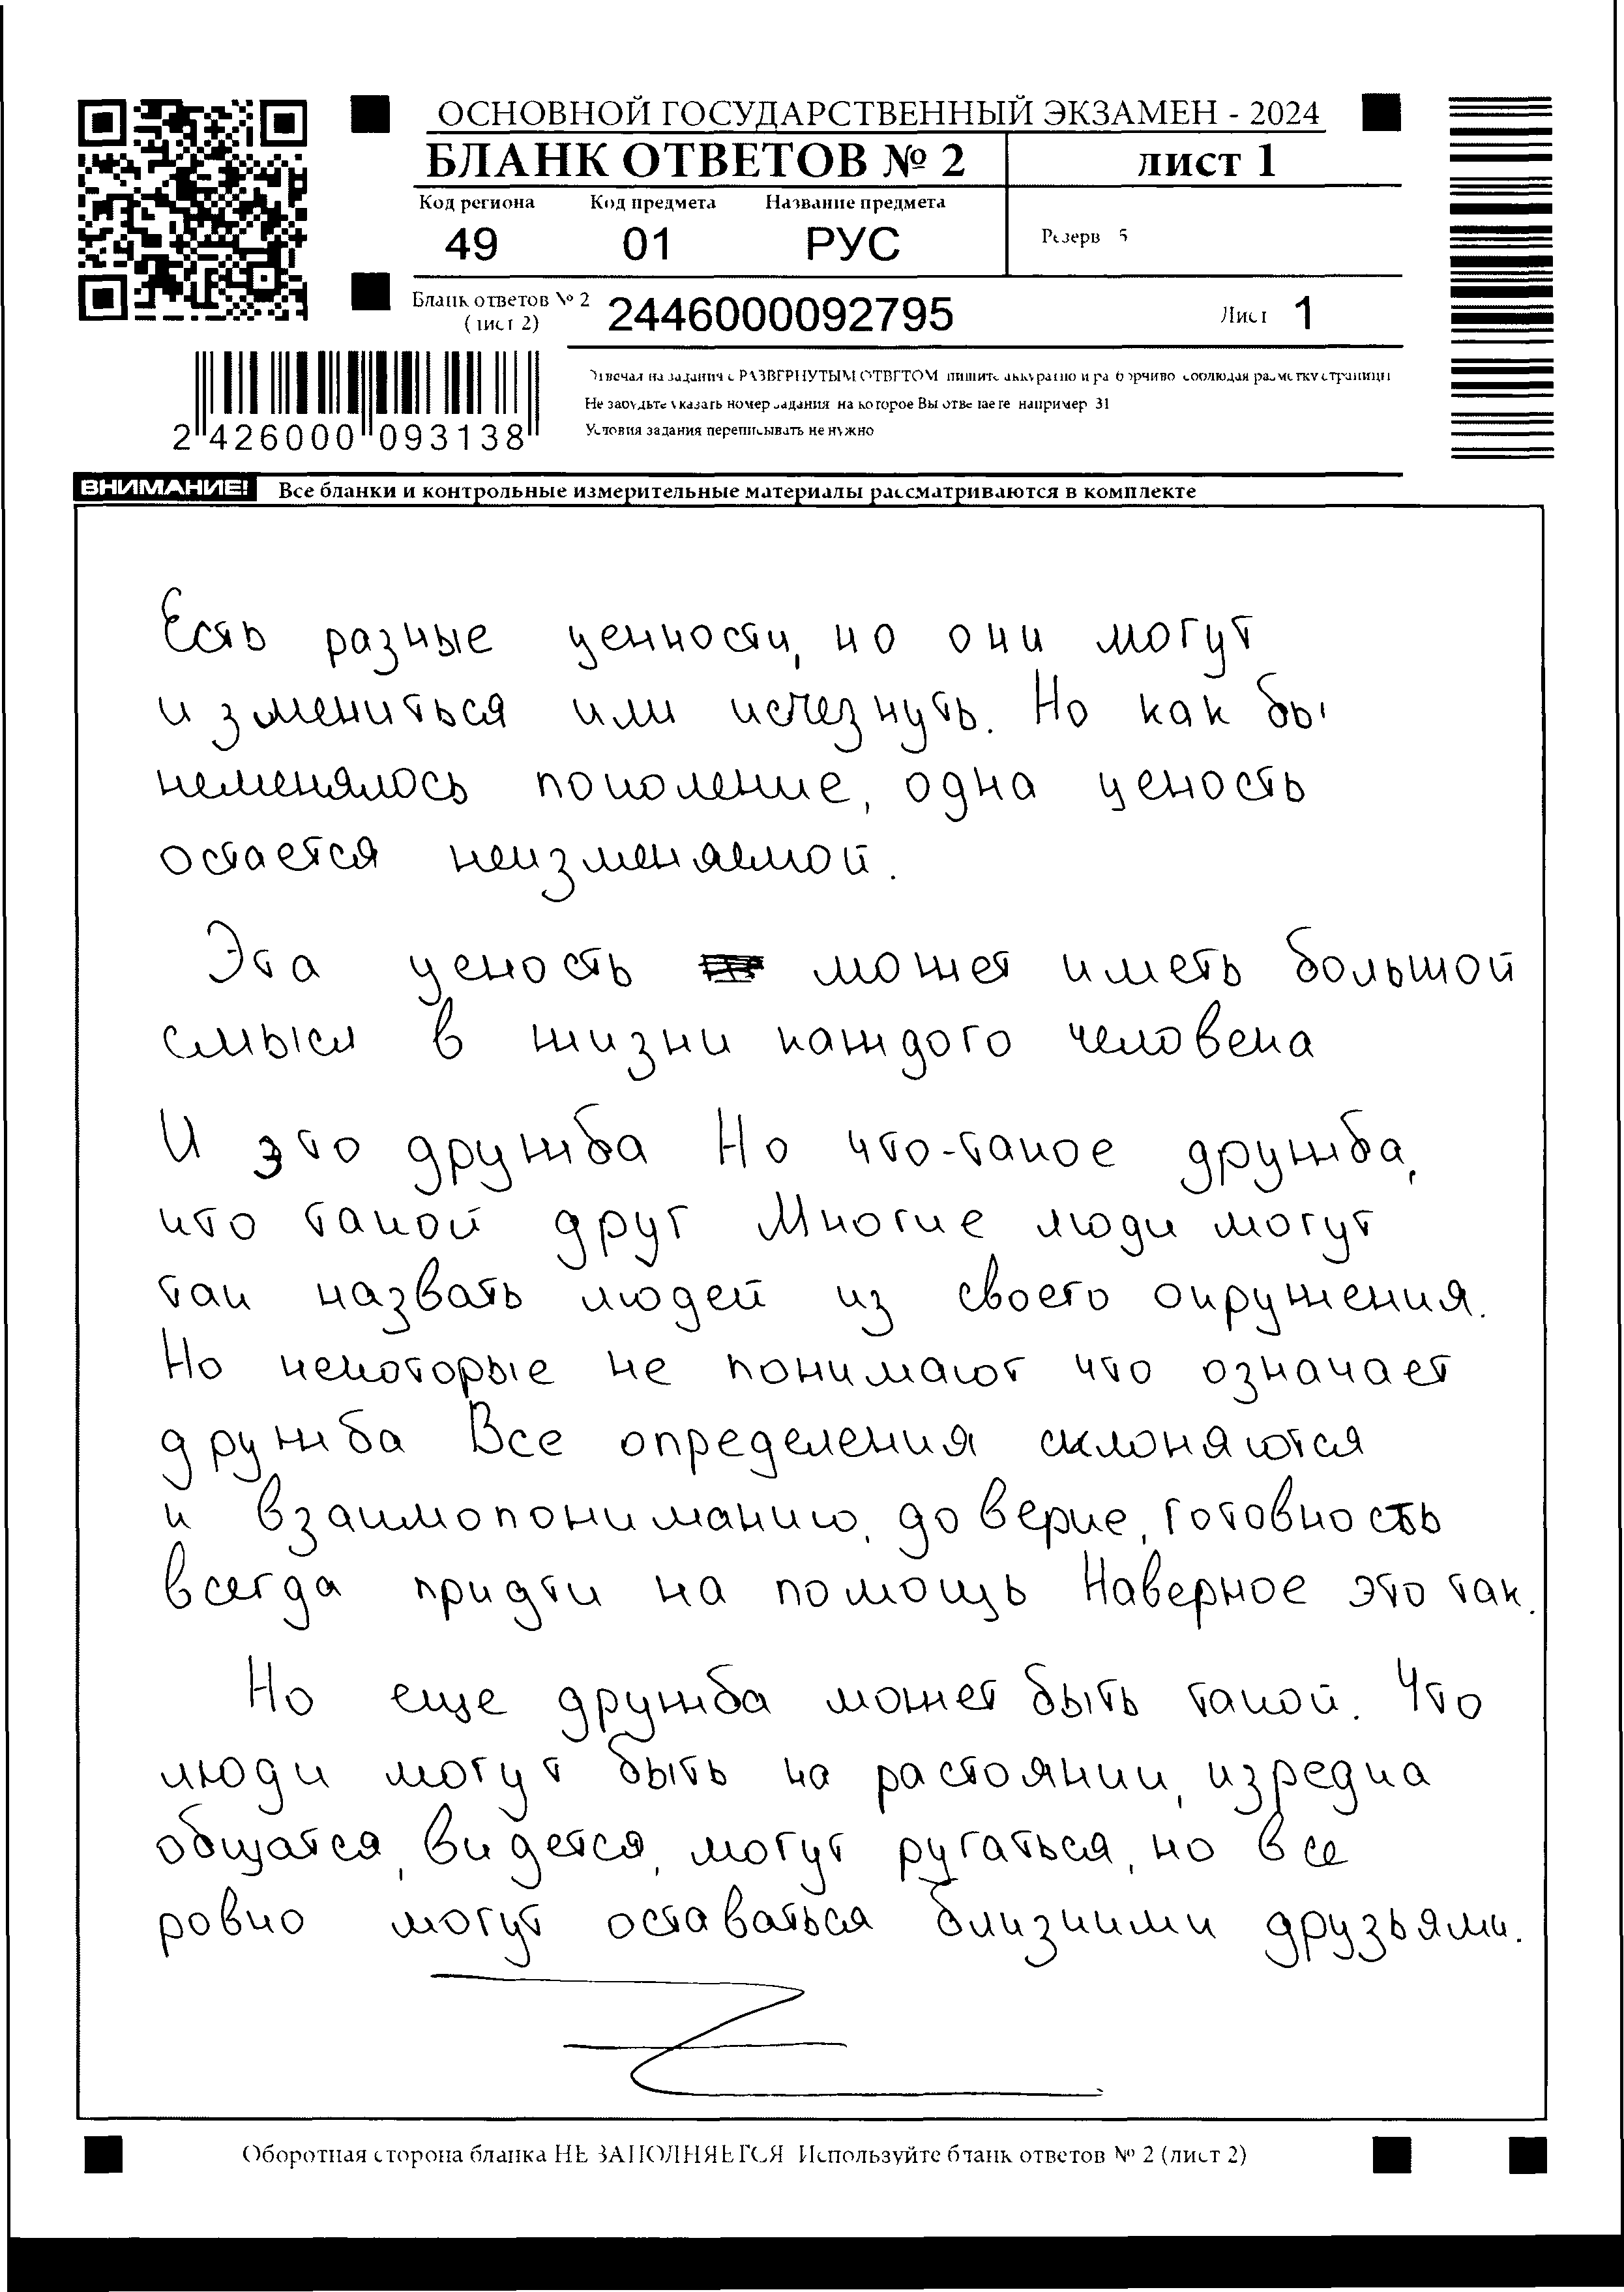 ОСНОВНОЙ ГОСУДАРСТВЕННЫЙ ЭКЗАМЕН - 2024
БЛАНК ОТВЕТОВ № 2
лист 1
Код региона Код предмета Название предмета
49 01 РУС
Резерв 5
Бланк ответов № 2
(лист 2)
2446000092795
Лист 1
Отвечая на задания с РАЗВЕРНУТЫМ ОТВЕТОМ пишите аккуратно и разборчиво соблюдая разметку страницы
Не забудьте указать номер задания на которое Вы отвечаете например 31
Условия задания переписывать не нужно
2 426000 093138
ВНИМАНИЕ! Все бланки и контрольные измерительные материалы рассматриваются в комплекте
Есть разные ценности, но они могут
измениться или исчезнуть. Но как бы
неменялось поколение, одна ценость
остается неизменяемой.
Эта ценость может иметь большой
смысл в жизни каждого человека
И это дружба Но что-такое дружба,
что такой друг Многие люди могут
так назвать людей из своего окружения.
Но некоторые не понимают что означает
дружба Все определения склоняются
к взаимопониманию, доверие, готовность
всегда придти на помощь Наверное это так.
Но еще дружба может быть такой. Что
люди могут быть на растоянии, изредка
общатся, видется, могут ругаться, но все
ровно могут оставаться близкими друзьями.
Оборотная сторона бланка НЕ ЗАПОЛНЯЕТСЯ Используйте бланк ответов № 2 (лист 2)